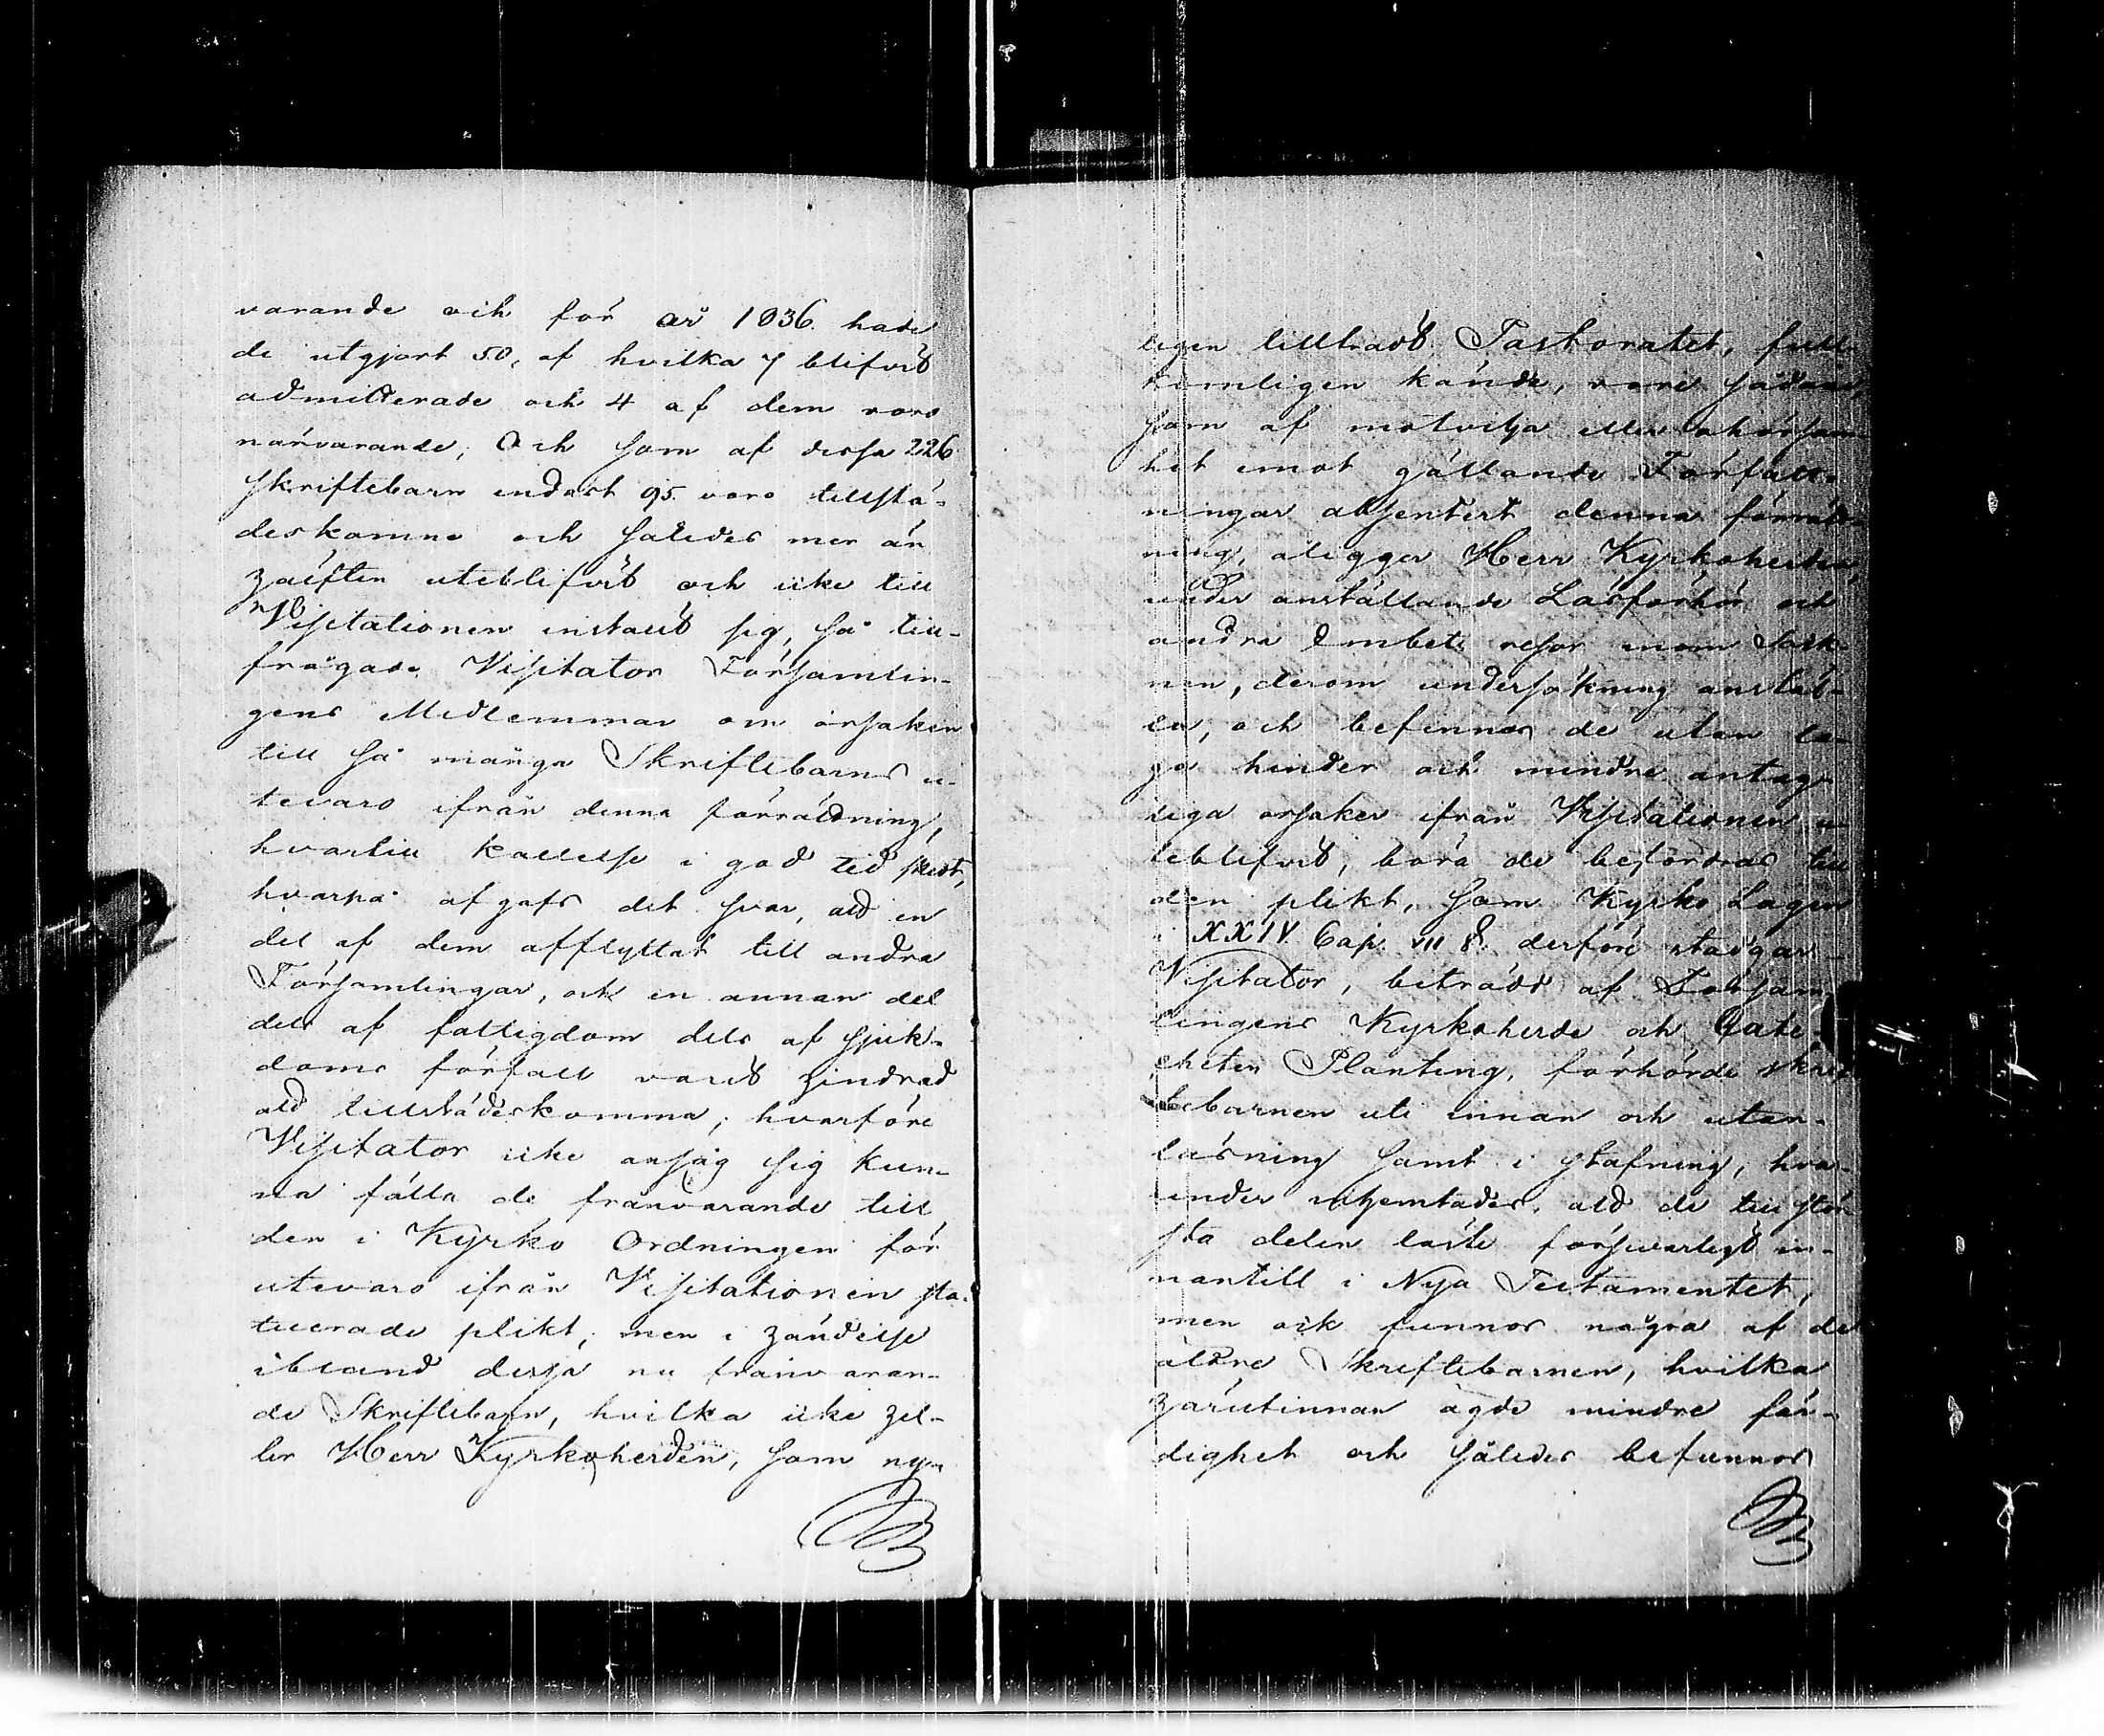 varande och för år 1836. hade
de utgjort 50, af hvilka 7 blifvit
admitterade och 4 af dem voro
närvarande; Och som af dessa 226
skriftebarn endast 95 voro tillstä-
deskomne och således mer än
hälften uteblifvit och icke till
Visitationen instält sig, så till-
frågade Visitator Församlin-
gens Medlemmar om orsaken
till så många Skriftebarns u-
tevaro ifrån denna förrättning,
hvartill kallelse i god tid skedt,
hvarpå afgafs det svar, att en
del af dem afflyttat till andra
Församlingar, och en annan del
dels af fattigdom dels af sjuk-
doms förfall varit hindrad
att tillstädeskomma; hvarföre
Visitator icke ansåg sig kun-
na fälla de frånvarande till
den i Kyrko Ordningen för
utevaro ifrån Visitationen sta-
tuerade plikt; men i händelse
ibland dessa nu frånvaran-
de Skriftebarn, hvilka icke hel-
ler Herr Kyrkoherden, som ny-
ligen tillträdt Pastoratet, full-
komligen kände, vore sådane,
som af motvilja eller ohörsam-
het emot gällande Författ-
ningar absenterat denna förrätt-
ning, åligger Herr Kyrkoherden
under anställande Läsförhör och
andra Embets resor inom Sock-
nen, derom undersökning anstäl-
la, och befinnas de utan la-
ga hinder och mindre antag-
liga orsaker ifrån Visitationen u-
teblifvit, böra de befordras till
den plikt, som Kyrko Lagen
i XXIV Cap. VII §. derföre stadgar._
Visitator, biträdd af Försam-
lingens Kyrkoherde och Cate-
cheten Planting, förhörde skrif-
tebarnen uti innan och utan-
läsning samt i stafning, hvar-
under inhemtades, att de till stör-
sta delen läste försvarligt in-
nantill i Nya Testamentet,
men ock funnos några af de
äldre Skriftebarnen, hvilka
härutinnan ägde mindre fär-
dighet och således befunnos